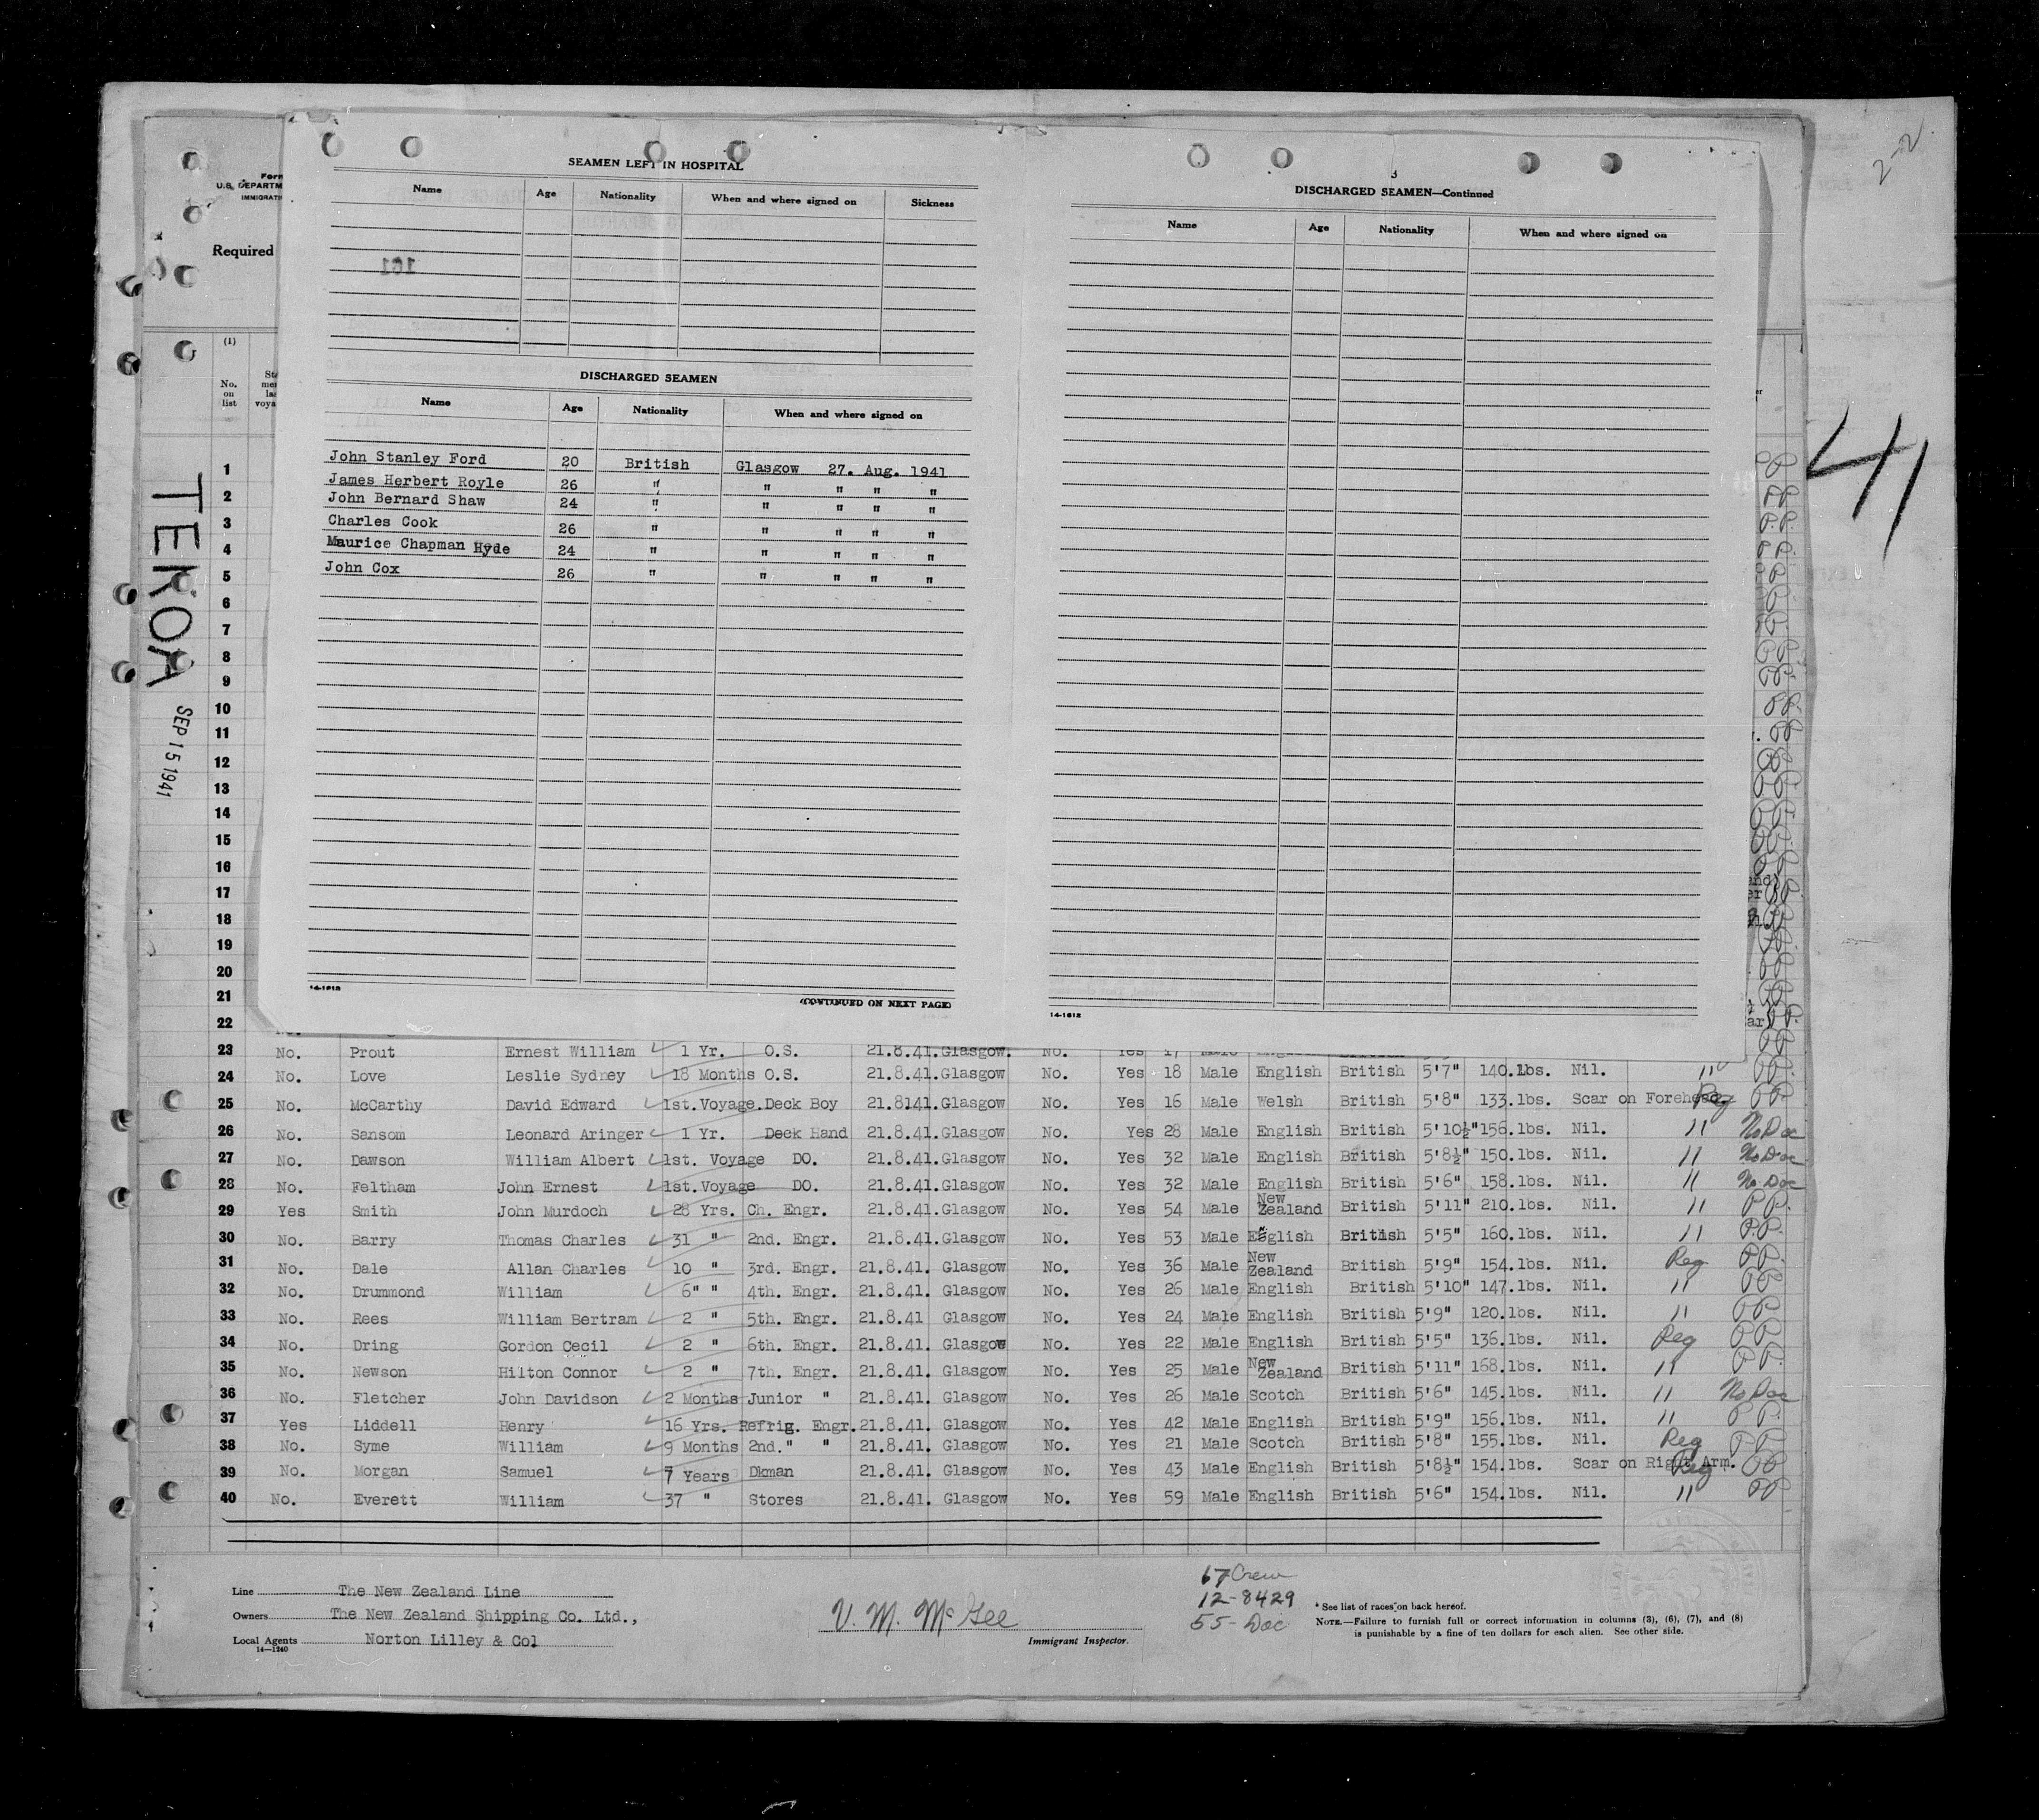 2-2
41
TEKOA
SEP 15 1941
Form
U.S. DEPARTM
IMMIGRATI
Required
(1)
No. on list
SEAMEN LEFT IN HOSPITAL
Name Age Nationality When and where signed on Sickness
161
DISCHARGED SEAMEN
Name Age Nationality When and where signed on
John Stanley Ford 20 British Glasgow 27. Aug. 1941
James Herbert Royle 26 " " " " "
John Bernard Shaw 24 " " " " "
Charles Cook 26 " " " " "
Maurice Chapman Hyde 24 " " " " "
John Cox 26 " " " " "
14-1612
(CONTINUED ON NEXT PAGE)
3
DISCHARGED SEAMEN—Continued
Name Age Nationality When and where signed on
14-1612
1
2
3
4
5
6
7
8
9
10
11
12
13
14
15
16
17
18
19
20
21
22
23 No. Prout Ernest William 1 Yr. O.S. 21.8.41. Glasgow. No. Yes 17 Male English
24 No. Love Leslie Sydney 18 Months O.S. 21.8.41. Glasgow No. Yes 18 Male English British 5'7" 140.lbs. Nil. " PP.
25 No. McCarthy David Edward 1st.Voyage.Deck Boy 21.8141. Glasgow No. Yes 16 Male Welsh British 5'8" 133.lbs. Scar on Forehead. Reg PP.
26 No. Sansom Leonard Aringer 1 Yr. Deck Hand 21.8.41. Glasgow No. Yes 28 Male English British 5'10½" 156.lbs. Nil. " No Doc
27 No. Dawson William Albert 1st. Voyage DO. 21.8.41. Glasgow No. Yes 32 Male English British 5'8½" 150.lbs. Nil. " No Doc
28 No. Feltham John Ernest 1st.Voyage DO. 21.8.41. Glasgow No. Yes 32 Male English British 5'6" 158.lbs. Nil. " No Doc
29 Yes Smith John Murdoch 28 Yrs. Ch. Engr. 21.8.41. Glasgow No. Yes 54 Male New Zealand British 5'11" 210.lbs. Nil. " PP.
30 No. Barry Thomas Charles 31 " 2nd. Engr. 21.8.41. Glasgow No. Yes 53 Male English British 5'5" 160.lbs. Nil. " P.P.
31 No. Dale Allan Charles 10 " 3rd. Engr. 21.8.41. Glasgow No. Yes 36 Male New Zealand British 5'9" 154.lbs. Nil. Reg PP.
32 No. Drummond William 6" " 4th. Engr. 21.8.41. Glasgow No. Yes 26 Male English British 5'10" 147.lbs. Nil. " PP
33 No. Rees William Bertram 2 " 5th. Engr. 21.8.41 Glasgow No. Yes 24 Male English British 5'9" 120.lbs. Nil. " PP
34 No. Dring Gordon Cecil 2 " 6th. Engr. 21.8.41. Glasgow No. Yes 22 Male English British 5'5" 136.lbs. Nil. Reg PP
35 No. Newson Hilton Connor 2 " 7th. Engr. 21.8.41. Glasgow No. Yes 25 Male New Zealand British 5'11" 168.lbs. Nil. " PP.
36 No. Fletcher John Davidson 2 Months Junior " 21.8.41. Glasgow No. Yes 26 Male Scotch British 5'6" 145.lbs. Nil. " No Doc
37 Yes Liddell Henry 16 Yrs. Refrig. Engr. 21.8.41. Glasgow No. Yes 42 Male English British 5'9" 156.lbs. Nil. " PP.
38 No. Syme William 9 Months 2nd." " 21.8.41. Glasgow No. Yes 21 Male Scotch British 5'8" 155.lbs. Nil. Reg PP
39 No. Morgan Samuel 7 Years Dkman 21.8.41. Glasgow No. Yes 43 Male English British 5'8½" 154.lbs. Scar on Right Arm. Reg PP
40 No. Everett William 37 " Stores 21.8.41. Glasgow No. Yes 59 Male English British 5'6" 154.lbs. Nil. " PP
Line The New Zealand Line
Owners The New Zealand Shipping Co. Ltd.,
Local Agents Norton Lilley & Co
14—1240
V. M. McGee
Immigrant Inspector.
67 Crew
12-8429
55- Doc
* See list of races on back hereof.
NOTE.—Failure to furnish full or correct information in columns (3), (6), (7), and (8)
is punishable by a fine of ten dollars for each alien. See other side.